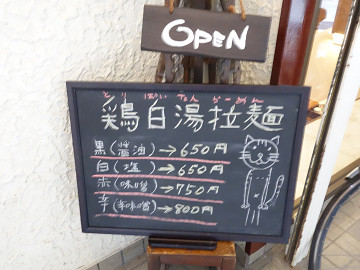 OPEN
とりぱいたんらーめん
鶏白湯拉麺
黒(醤油)→650円
白(塩)→650円
赤(味噌)→750円
辛(辛味噌)→800円